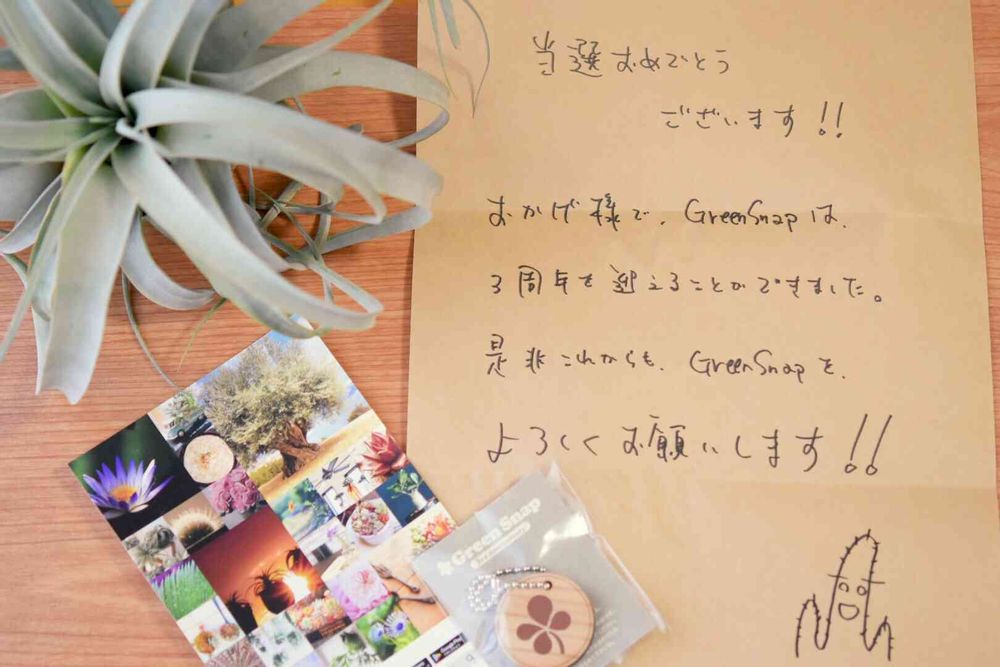 当選おめでとう
ございます!!
おかげ様で、GreenSnapは、
3周年を迎えることができました。
是非これからも、GreenSnapを、
よろしくお願いします!!
Green Snap